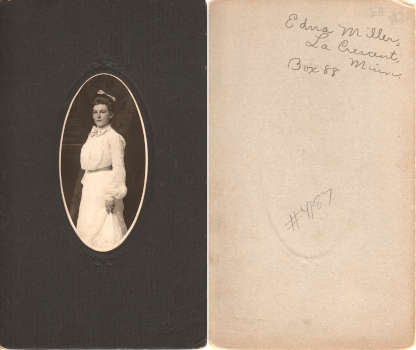 Edna Miller,
La Crescent,
Minn.
Box 88
#4187